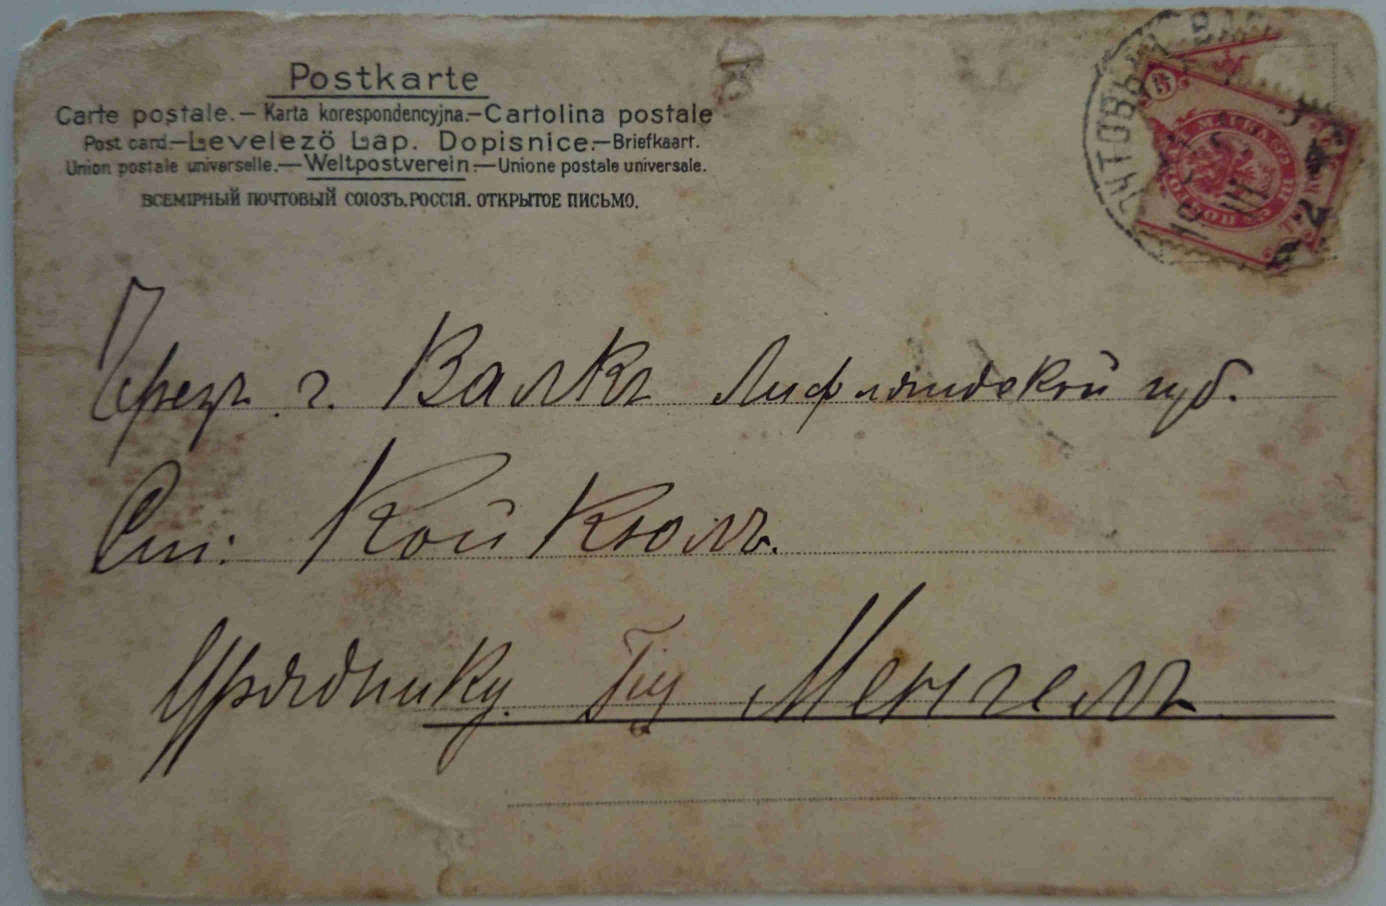 Postkarte
Carte postale.— Karta korespondencyjna.—Cartolina postale
Post card.—Levelező Lap. Dopisnice.—Briefkaart.
Union postale universelle.—Weltpostverein.—Unione postale universale.
ВСЕМІРНЫЙ ПОЧТОВЫЙ СОЮЗЪ.РОССІЯ. ОТКРЫТОЕ ПИСЬМО.
Чрезъ г. Валкъ Лифляндской губ.
Ст: Койкюль.
Уряднику. Гну Менгель